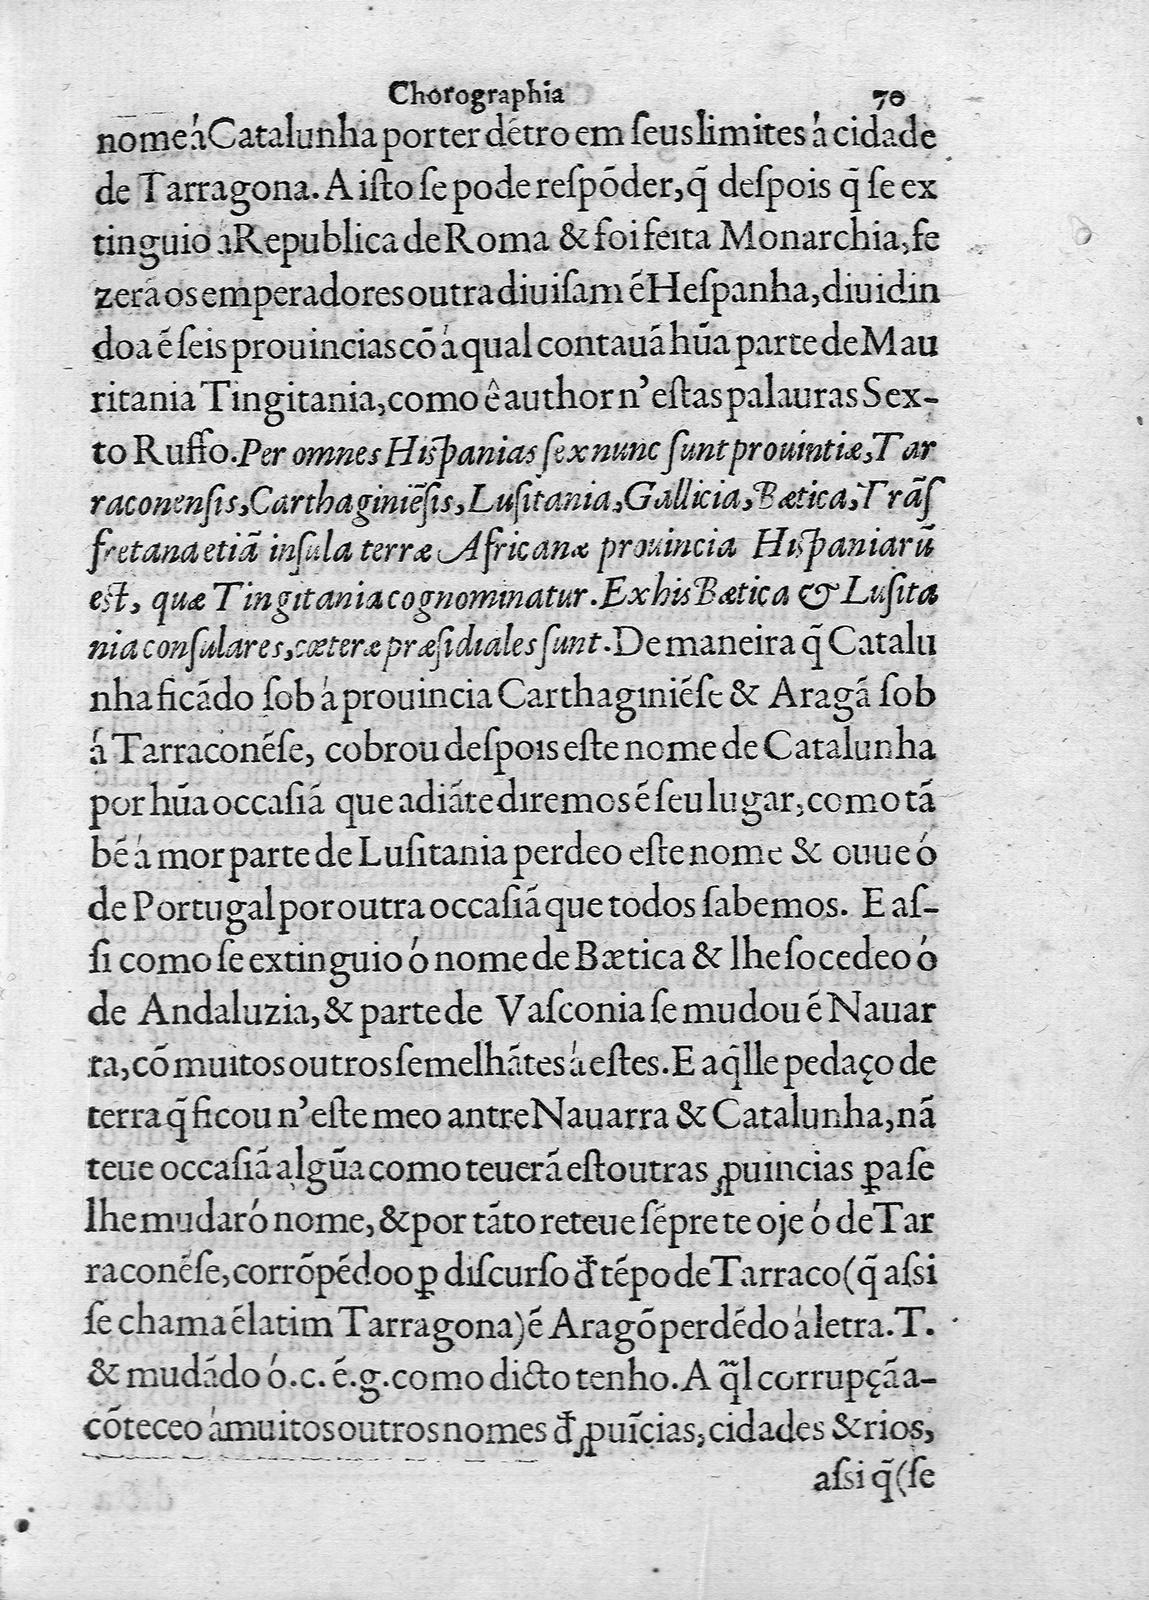 Chorographia 70
nome á Catalunha por ter dẽtro em ſeus limites á cidade
de Tarragona. A iſto ſe pode reſpõder, q̃ deſpois q̃ ſe ex
tinguio á Republica de Roma & foi feita Monarchia, fe
zerã os emperadores outra diuiſam ẽ Heſpanha, diuidin
doa ẽ ſeis prouincias cõ á qual contauã hũa parte de Mau
ritania Tingitania, como ê author n’eſtas palauras Sex-
to Ruffo. Per omnes Hiſpanias ſex nunc ſunt prouintiæ, Tar
raconenſis, Carthaginiẽſis, Luſitania, Gallicia, Bætica, Trãſ
fretana etiã inſula terræ Africanæ prouincia Hiſpaniarũ
eſt, quæ Tingitania cognominatur. Ex his Bætica & Luſita
nia conſulares, cæteræ præſidiales ſunt. De maneira q̃ Catalu
nha ficãdo ſob á prouincia Carthaginiẽſe & Aragã ſob
á Tarraconẽſe, cobrou deſpois eſte nome de Catalunha
por hũa occaſiã que adiãte diremos ẽ ſeu lugar, como tã
bẽ á mor parte de Luſitania perdeo eſte nome & ouue ó
de Portugal por outra occaſiã que todos ſabemos. E aſ-
ſi como ſe extinguio ó nome de Bætica & lhe ſocedeo ó
de Andaluzia, & parte de Vaſconia ſe mudou ẽ Nauar
ra, cõ muitos outros ſemelhãtes á eſtes. E aq̃lle pedaço de
terra q̃ ficou n’eſte meo antre Nauarra & Catalunha, nã
teue occaſiã algũa como teuerã eſtoutras ꝓuincias ꝑa ſe
lhe mudar ó nome, & por tãto reteue ſẽpre te oje ó de Tar
raconẽſe, corrõpẽdoo ꝑ diſcurſo đ tẽpo de Tarraco (q̃ aſsi
ſe chama ẽ latim Tarragona) ẽ Aragõ perdẽdo á letra. T.
& mudãdo ó .c. ẽ .g. como dicto tenho. A q̃l corrupçã a-
cõteceo á muitos outros nomes đ ꝓuĩcias, cidades & rios,
aſsi q̃ (ſe